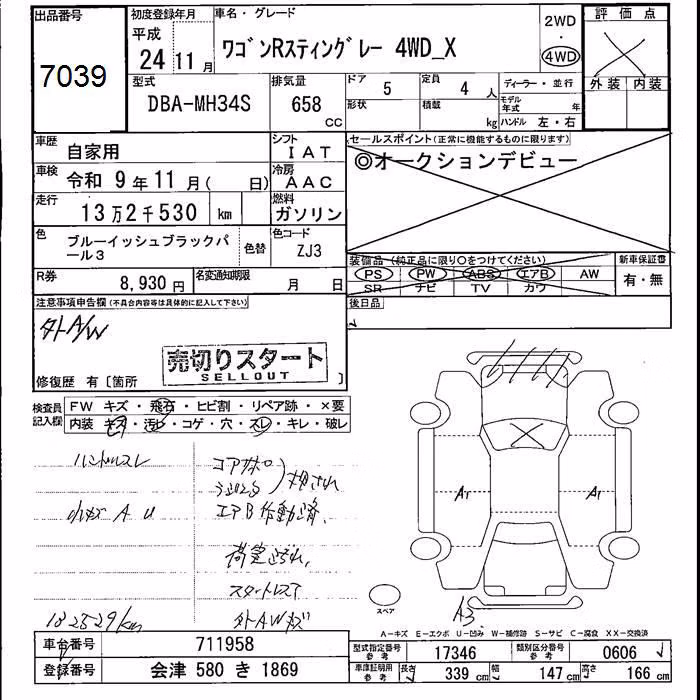 出品番号
7039
初度登録年月
平成
24 11 月
車名・グレード
ワゴンRスティングレー 4WD_X
2WD
・
4WD
評価点
外装 内装
型式
DBA-MH34S
排気量
658
cc
ドア
5
定員
4 人
形状
積載
kg
ディーラー・並行
モデル年式 年
ハンドル 左・右
車歴
自家用
シフト
IAT
車検
令和 9 年 11 月( 日)
冷房
AAC
走行
13 万 2 千 530 km
燃料
ガソリン
色
ブルーイッシュブラックパール3
色替
色コード
ZJ3
R券
8,930 円
名変通知期限
月 日
セールスポイント(正常に機能するものに限ります)
◎オークションデビュー
装備品(純正品に限り○をつけてください)
PS PW ABS エアB AW
SR ナビ TV カワ
新車保証書
有・無
後日品
注意事項申告欄(不具合内容等は具体的に記入して下さい)
外A/W
売切りスタート
SELLOUT
修復歴 有〔箇所 〕
検査員記入欄
FW キズ・飛石・ヒビ割・リペア跡・×要
内装 キズ・汚レ・コゲ・穴・スレ・キレ・破レ
ハンドルスレ
小キズ A U
エアB作動済
外AWキズ
132529km
A1
A1
A3
スペア
A-キズ E-エクボ U-凹み W-補修跡 S-サビ C-腐食 XX-交換済
車台番号
711958
登録番号
会津 580 き 1869
型式指定番号 参考
17346
類別区分番号 参考
0606
車庫証明用 参考
長さ 339 cm 幅 147 cm 高さ 166 cm